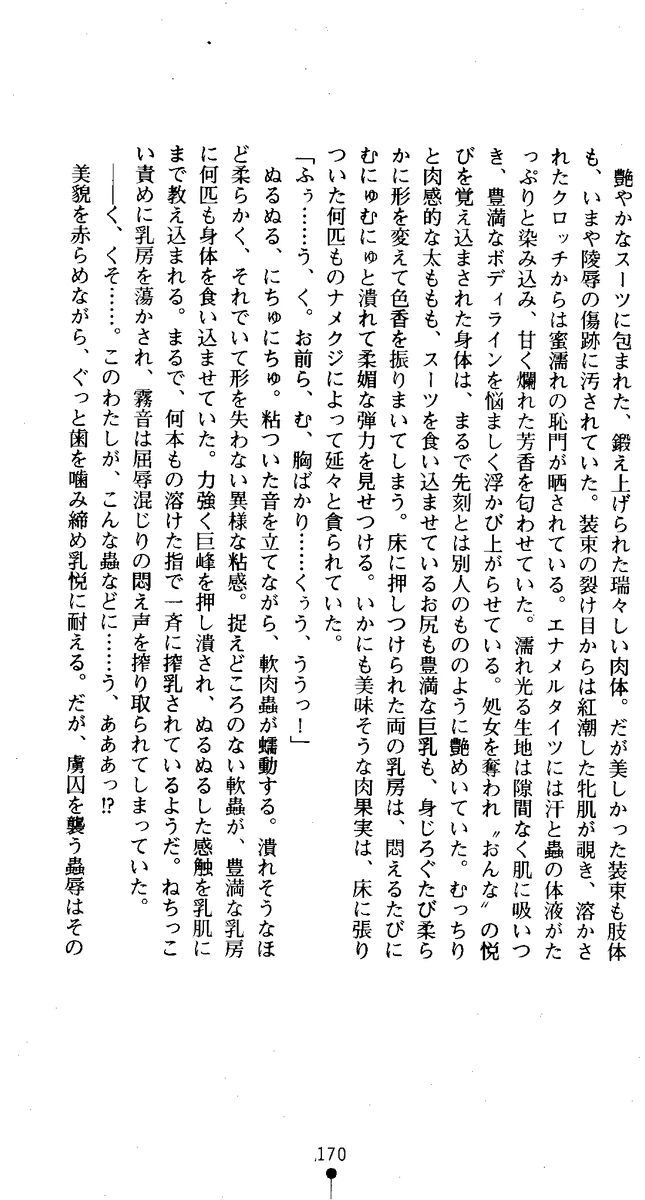 艶やかなスーツに包まれた、鍛え上げられた瑞々しい肉体。だが美しかった装束も肢体
も、いまや陵辱の傷跡に汚されていた。装束の裂け目からは紅潮した牝肌が覗き、溶かさ
れたクロッチからは蜜濡れの恥門が晒されている。エナメルタイツには汗と蟲の体液がた
っぷりと染み込み、甘く爛れた芳香を匂わせていた。濡れ光る生地は隙間なく肌に吸いつ
き、豊満なボディラインを悩ましく浮かび上がらせている。処女を奪われ〝おんな〟の悦
びを覚え込まされた身体は、まるで先刻とは別人のもののように艶めいていた。むっちり
と肉感的な太ももも、スーツを食い込ませているお尻も豊満な巨乳も、身じろぐたび柔ら
かに形を変えて色香を振りまいてしまう。床に押しつけられた両の乳房は、悶えるたびに
むにゅむにゅと潰れて柔媚な弾力を見せつける。いかにも美味そうな肉果実は、床に張り
ついた何匹ものナメクジによって延々と貪られていた。
「ふぅ……う、く。お前ら、む、胸ばかり……くぅう、ううっ！」
ぬるぬる、にちゅにちゅ。粘ついた音を立てながら、軟肉蟲が蠕動する。潰れそうなほ
ど柔らかく、それでいて形を失わない異様な粘感。捉えどころのない軟蟲が、豊満な乳房
に何匹も身体を食い込ませていた。力強く巨峰を押し潰され、ぬるぬるした感触を乳肌に
まで教え込まれる。まるで、何本もの溶けた指で一斉に搾乳されているようだ。ねちっこ
い責めに乳房を蕩かされ、霧音は屈辱混じりの悶え声を搾り取られてしまっていた。
――く、くそ……。このわたしが、こんな蟲などに……う、あああっ!?
美貌を赤らめながら、ぐっと歯を噛み締め乳悦に耐える。だが、虜囚を襲う蟲辱はその
170